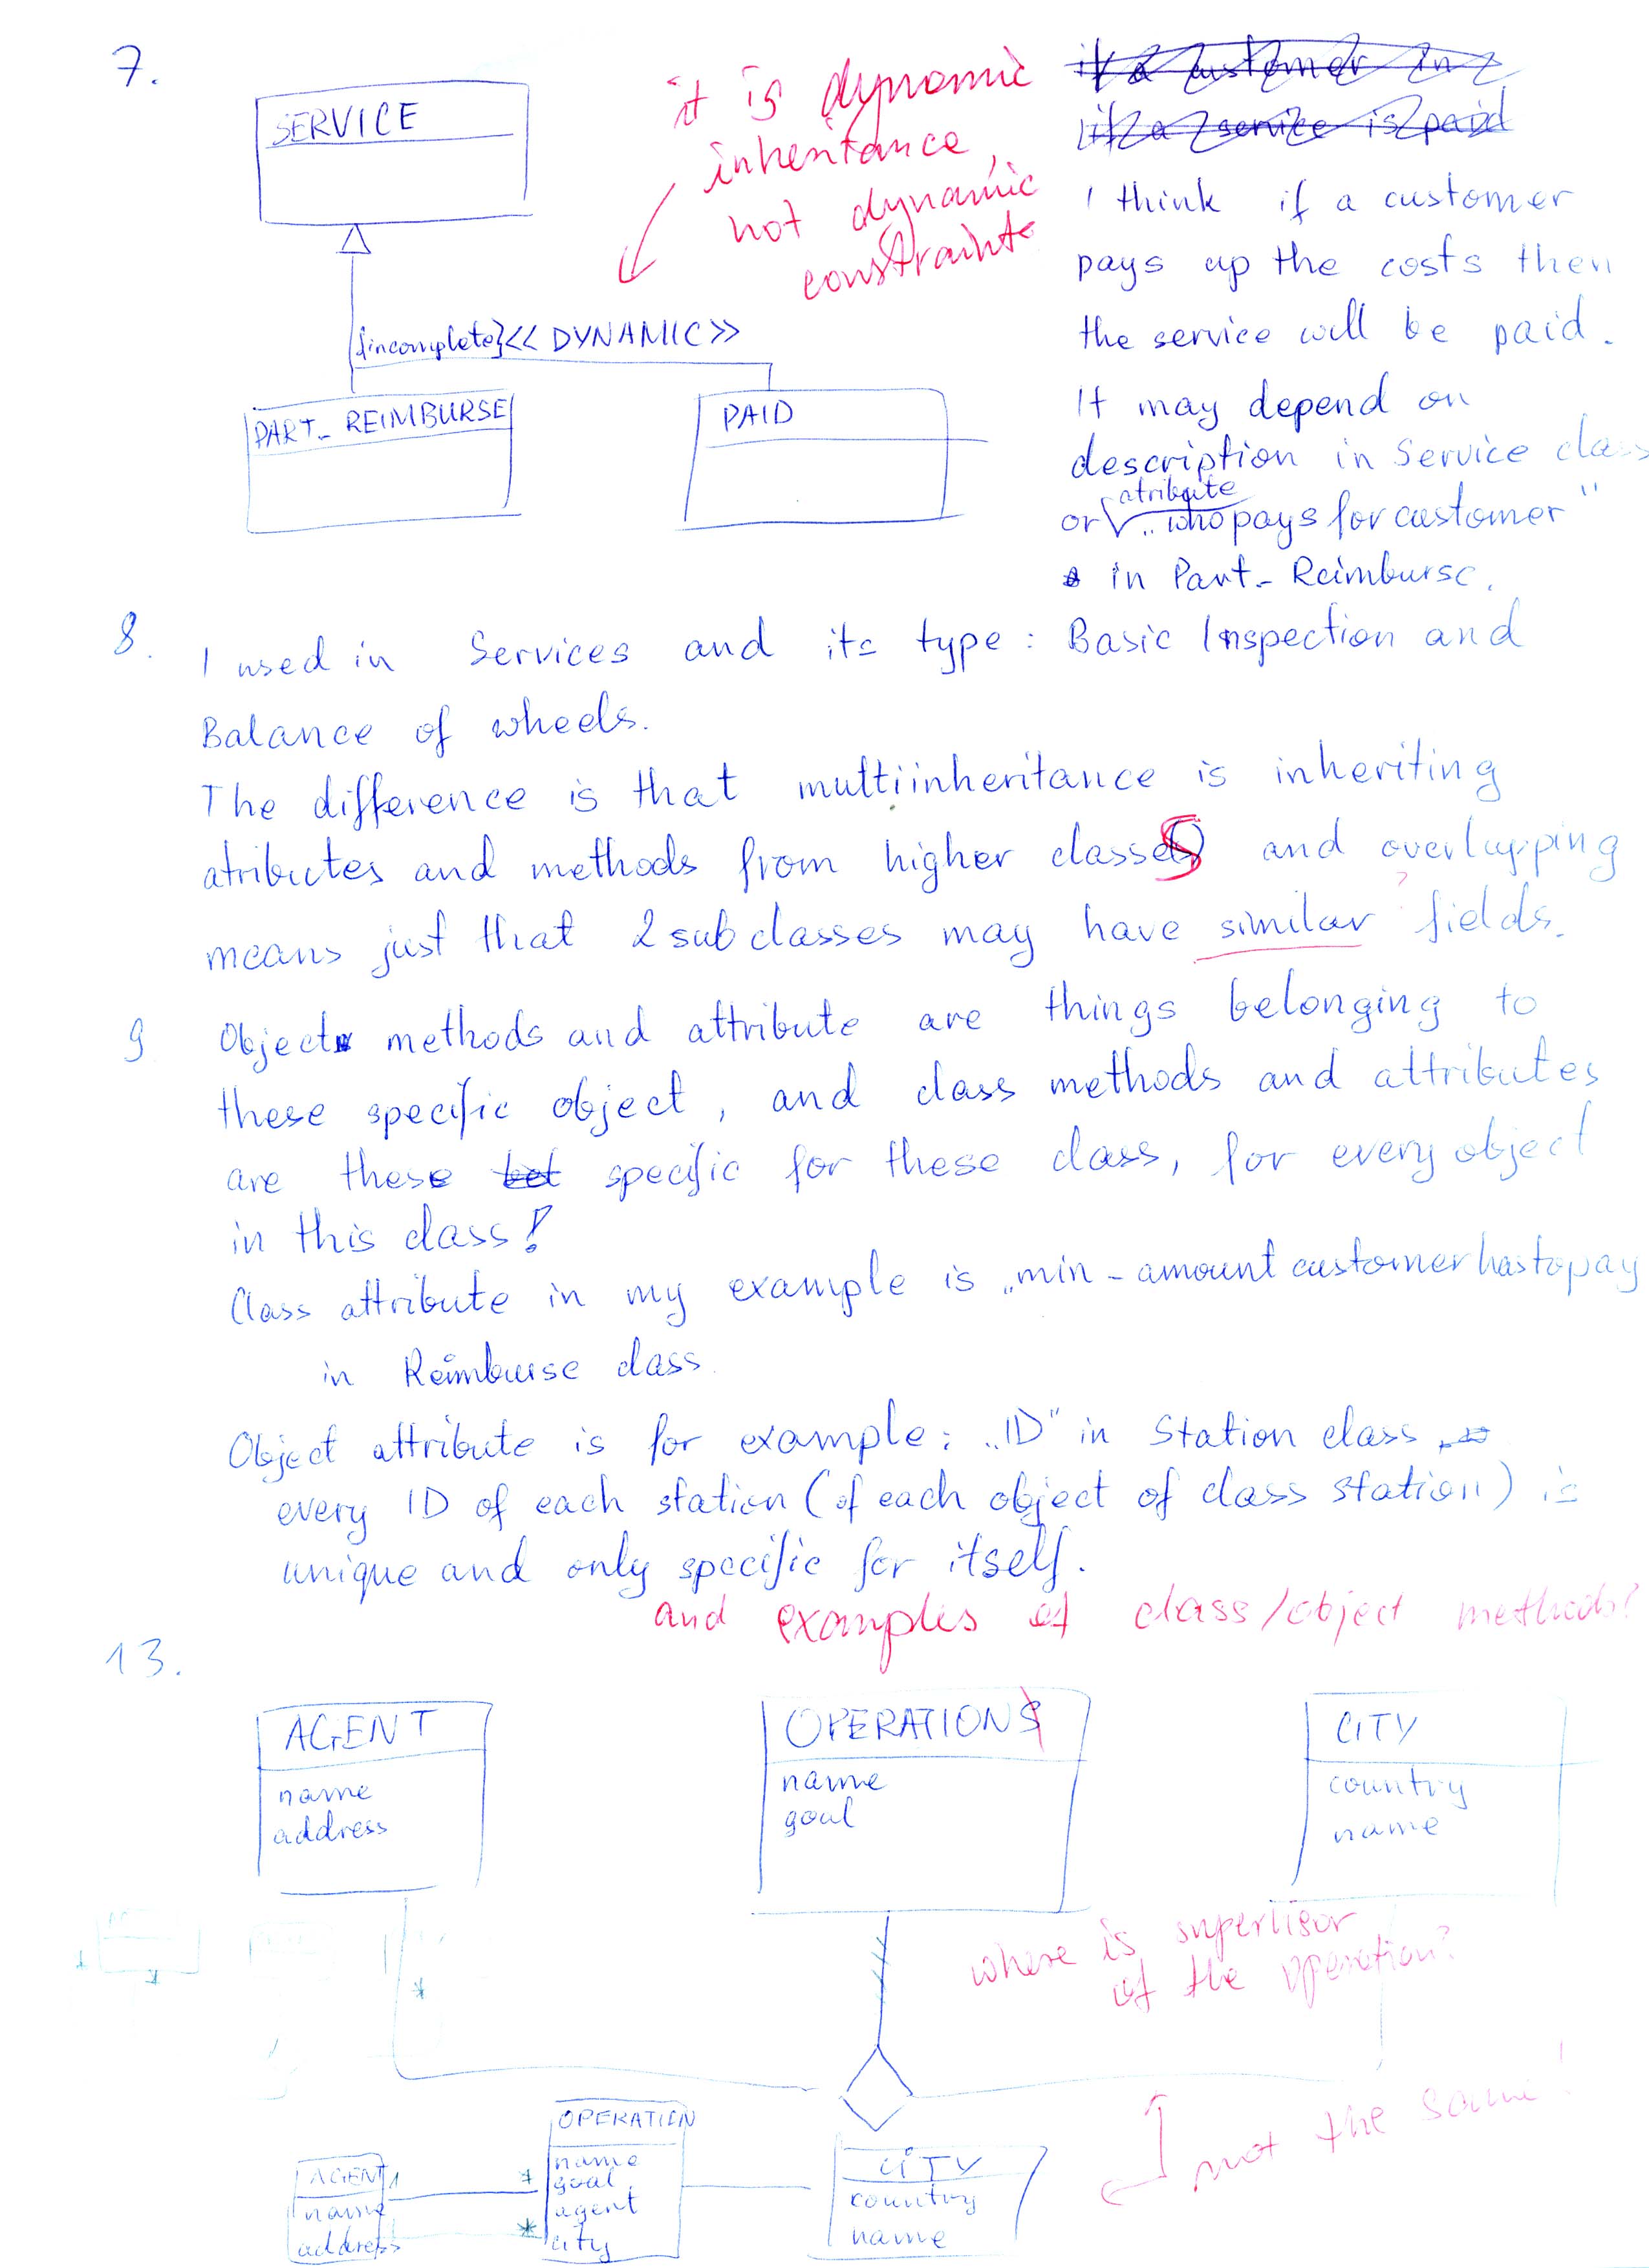 7.
SERVICE
{incomplete}<< DYNAMIC >>
PART_ REIMBURSE
PAID
it is dynamic
inheritance,
not dynamic
constraints
I think if a customer
pays up the costs then
the service will be paid.
It may depend on
description in Service class
atribute
or „who pays for customer"
in Part_ Reimburse.
8. I used in Services and its type: Basic Inspection and
Balance of wheels.
The difference is that multiinheritance is inheriting
atributes and methods from higher classes and overlapping
?
means just that 2 subclasses may have similar fields.
9 Object methods and attribute are things belonging to
these specific object, and class methods and attributes
are these specific for these class, for every object
in this class!
Class attribute in my example is „min-amount customer has to pay
in Reimburse class.
Object attribute is for example: „ID" in Station class,
every ID of each station (of each object of class station) is
unique and only specific for itself.
and examples of class/object methods?
13.
AGENT
name
address
OPERATIONS
name
goal
CITY
country
name
*
where is supervisor
of the operation?
not the same!
AGENT
name
address
1
*
*
OPERATION
name
goal
agent
city
CITY
country
name